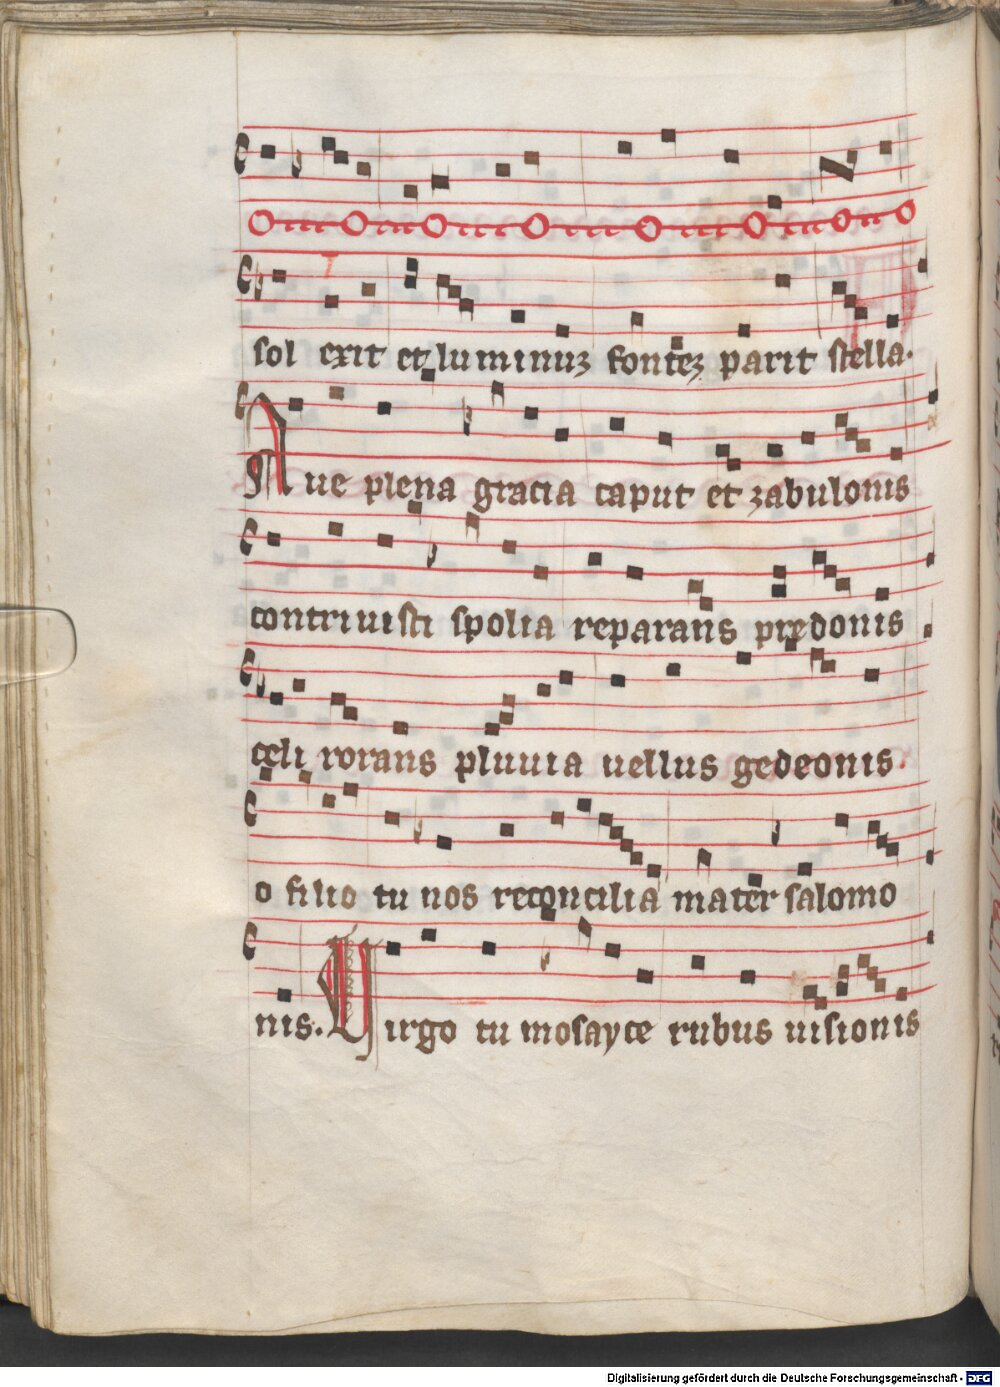 sol exit et luminuʒ fonteʒ parit stella.
Aue plena gracia caput et zabulonis
contriuisti spolia reparans predonis
celi rorans pluuia uellus gedeonis.
o filio tu nos reconcilia mater salomo
nis. Uirgo tu mosayce rubus uisionis
Digitalisierung gefördert durch die Deutsche Forschungsgemeinschaft - DFG